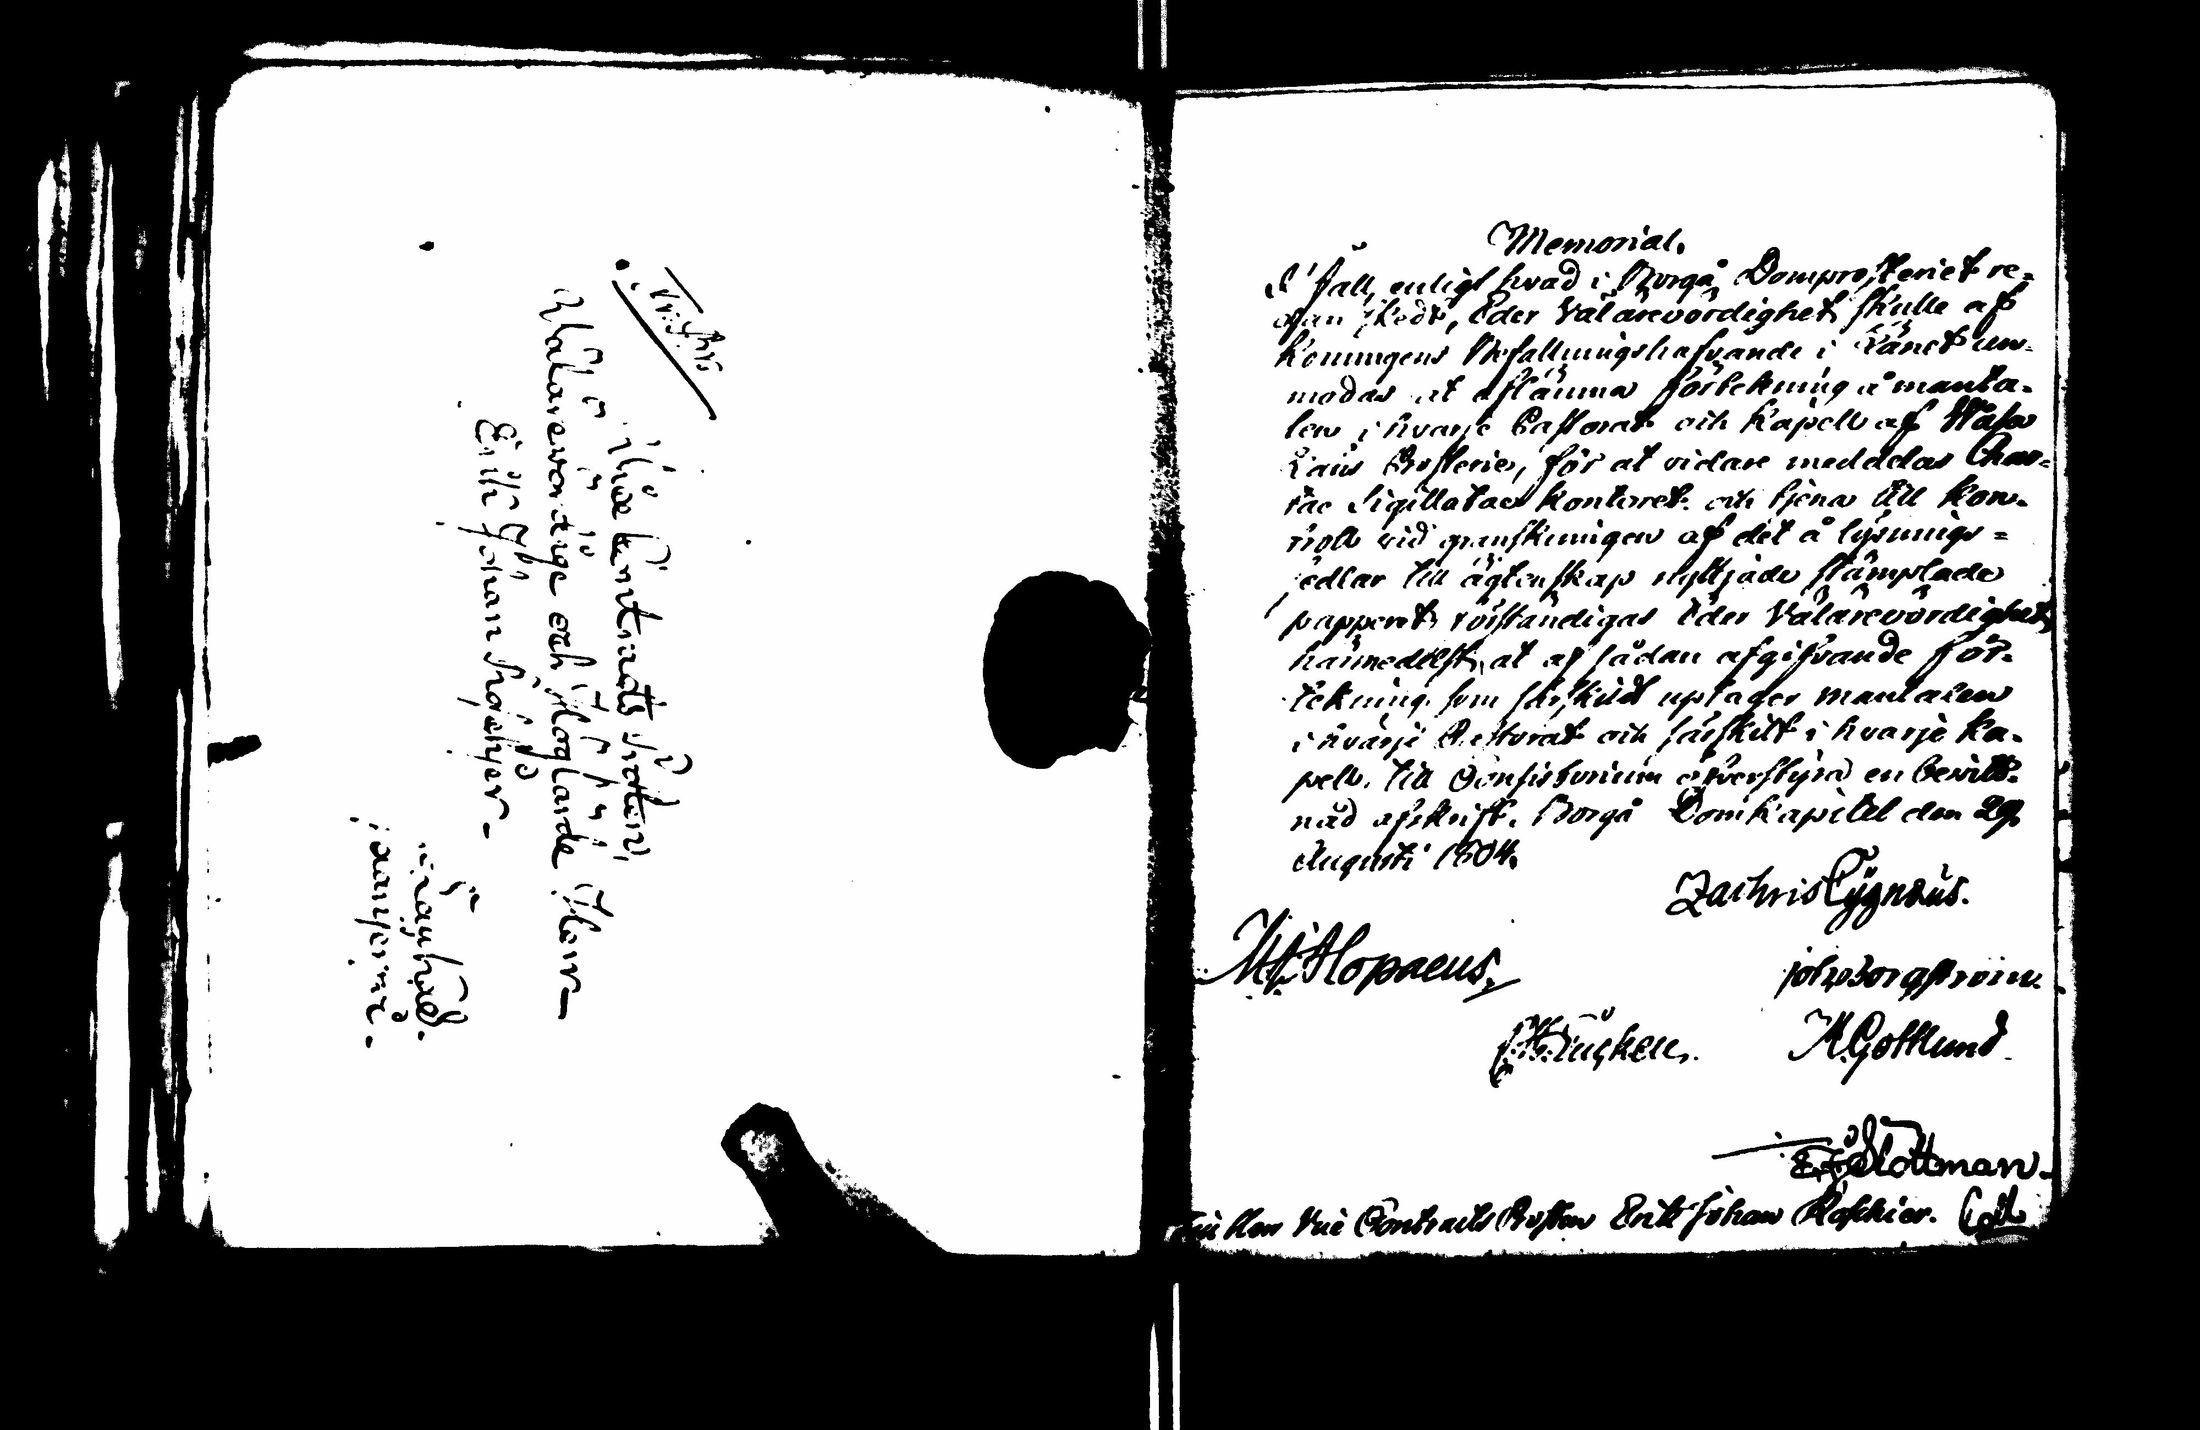 Vice Contracts Prosten,
Välärevördige och Höglärde Herr
Erik Johan Frosterus
Memorial.
I fall, enligt hvad i Borgå Domprosteriet re-
dan skedt, Eder Välärevördighet skulle af
Konungens Befallningshafvande i Länet an-
modas at aflämna förtekning å manta-
len i hvarje Pastorat och Kapell af
Läns Prosterie, för at vidare meddelas Char-
tae Sigillatae Kontoret och tjena till kon-
troll vid granskningen af det å lysnings-
sedlar till ägtenskap nyttjade stämplade
papperet, förständigas Eder Välärevördighet
härmedelst, at af sådan afgifvande för-
tekning som särskildt uptager mantalen
i hvarje Pastorat och särskilt i hvarje Ka-
pell, till Consistorium öfverstyra en bevitt-
nad afskrift. Borgå Domkapitel den 29
Augusti 1804.
Zachris Cygnæus.
M. Alopaeus.
joh. Borgström.
M. Gottlund.
Slottman.
Till Herr Vice Contracts Prosten Erik Johan